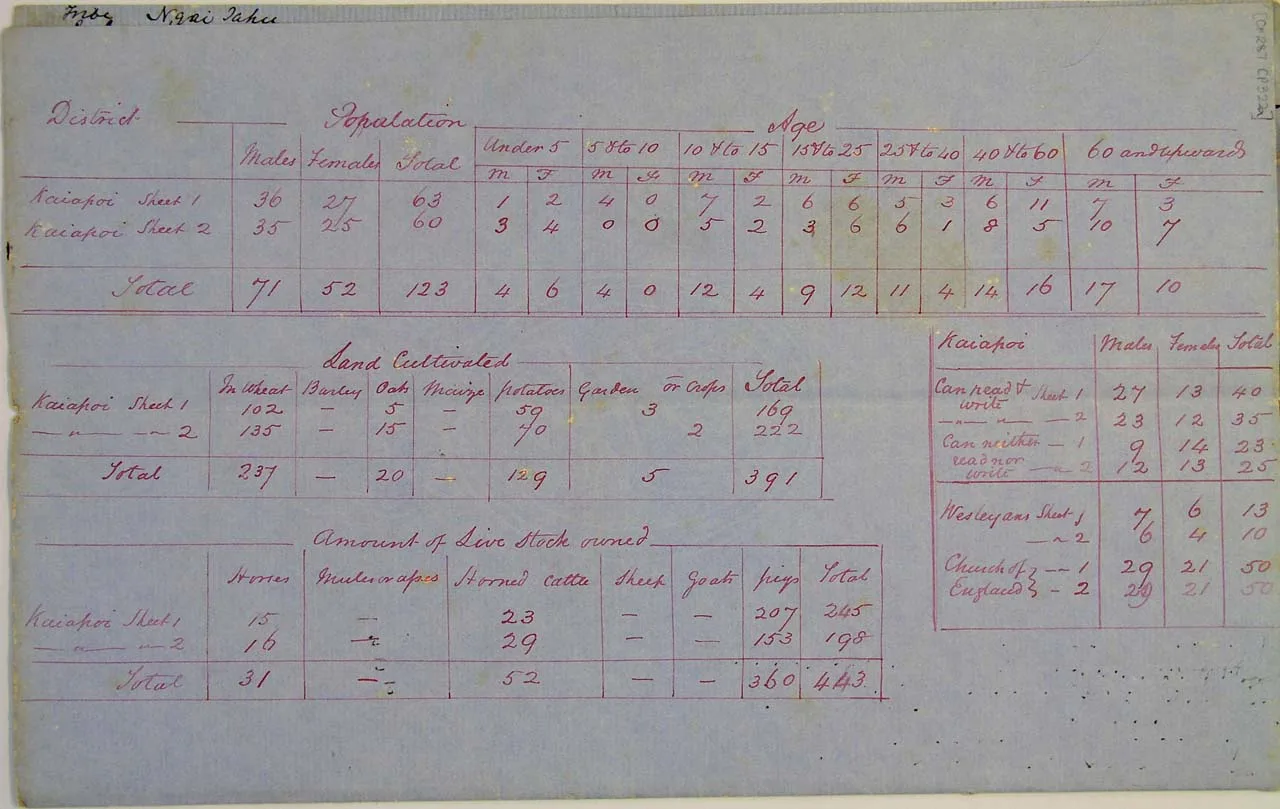 Tribe Ngai Tahu
District Population Age
Males Females Total Under 5 5 & to 10 10 & to 15 15 & to 25 25 & to 40 40 & to 60 60 and upwards
M F M F M F M F M F M F M F
Kaiapoi Sheet 1 36 27 63 1 2 4 0 7 2 6 6 5 3 6 11 7 3
Kaiapoi Sheet 2 35 25 60 3 4 0 0 5 2 3 6 6 1 8 5 10 7
Total 71 52 123 4 6 4 0 12 4 9 12 11 4 14 16 17 10
Land Cultivated
In Wheat Barley Oats Maize Potatoes Garden or Crops Total
Kaiapoi Sheet 1 102 – 5 – 59 3 169
— " — " 2 135 – 15 – 70 2 222
Total 237 – 20 – 129 5 391
Amount of Live Stock owned
Horses Mules or asses Horned Cattle Sheep Goats pigs Total
Kaiapoi Sheet 1 15 – 23 – – 207 245
— " — " 2 16 – 29 – – 153 198
Total 31 – 52 – – 360 443
Kaiapoi Males Females Total
Can read & write Sheet 1 27 13 40
— " — " — 2 23 12 35
Can neither – 1 9 14 23
read nor write — " 2 12 13 25
Wesleyans Sheet 1 7 6 13
— " 2 6 4 10
Church of } – – 1 29 21 50
England } – 2 29 21 50